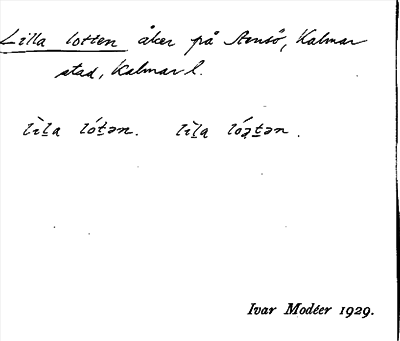 Lilla lotten åker på Stensö, Kalmar
stad, Kalmar l.
lìl̠a lót̠ən. lìl̠a lóa̯t̠ən.
Ivar Modéer 1929.